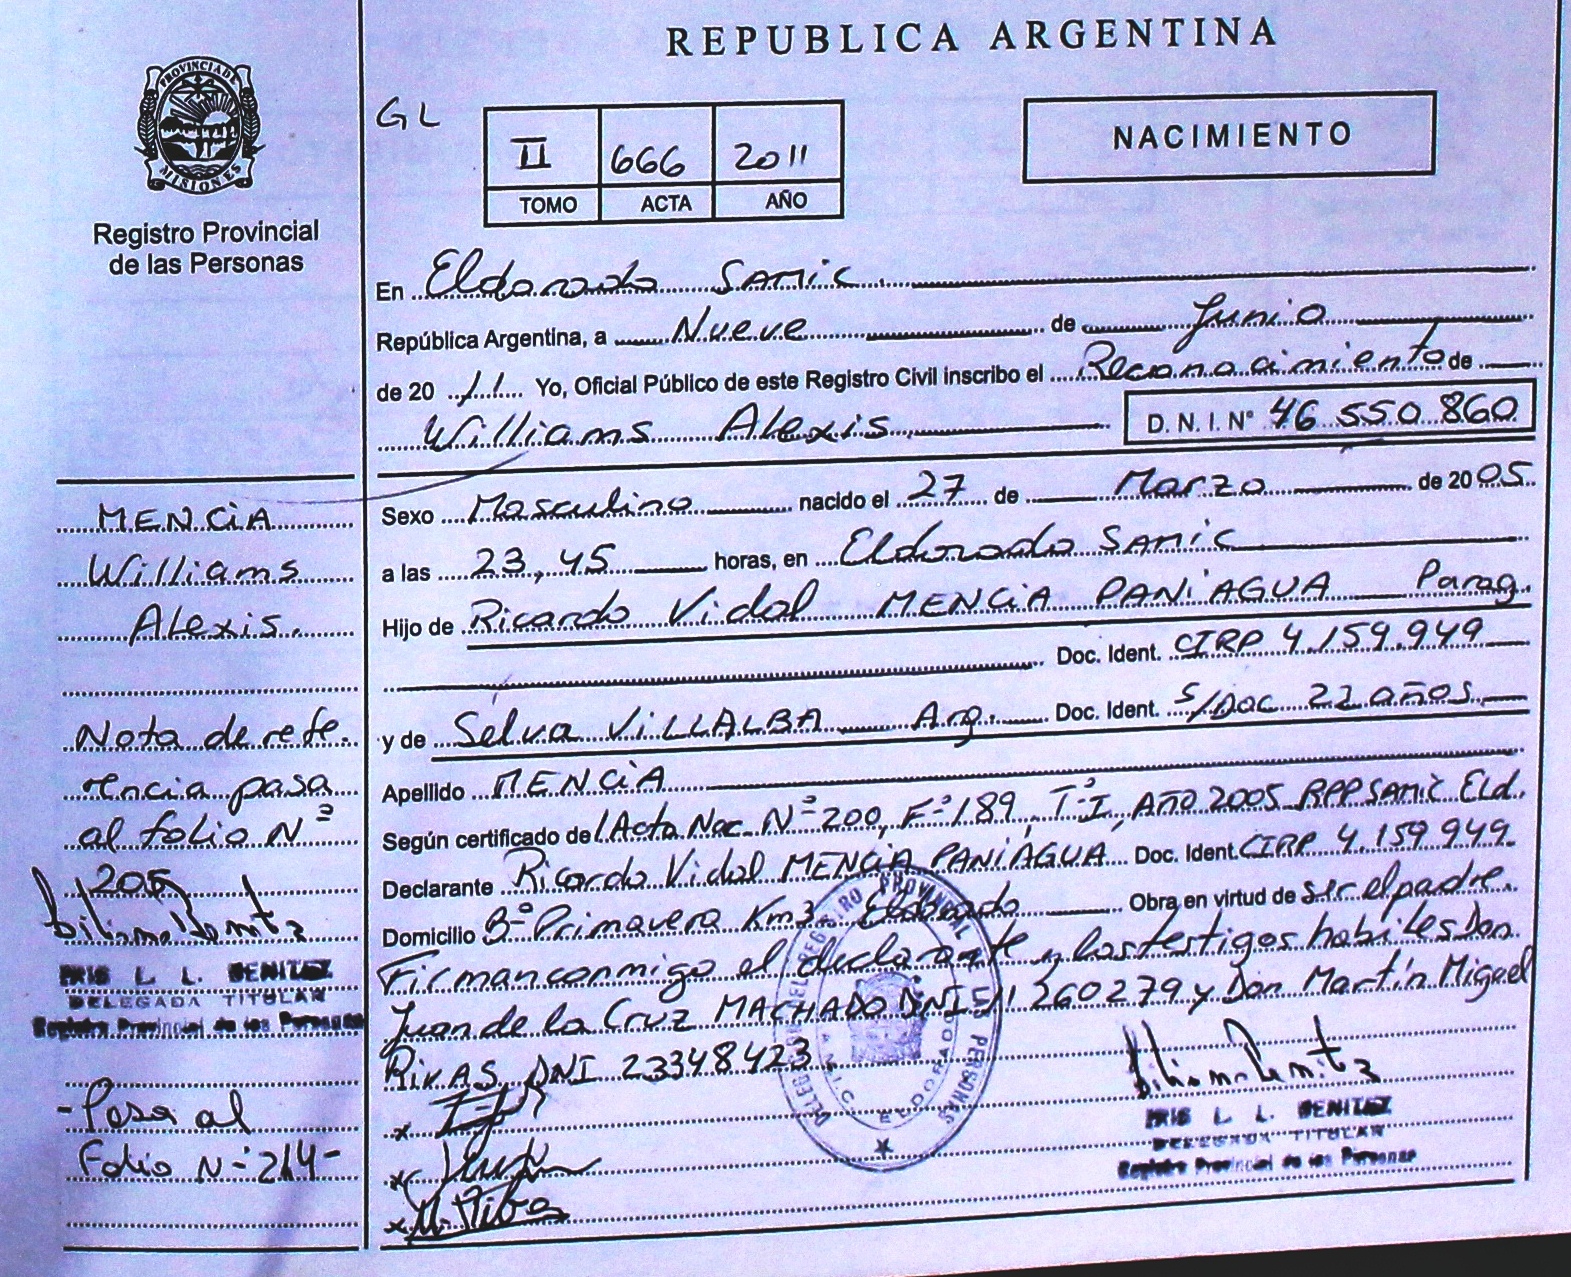 REPUBLICA ARGENTINA
PROVINCIA DE MISIONES
Registro Provincial
de las Personas
GL
II 666 2011
TOMO ACTA AÑO
NACIMIENTO
En Eldorado SAMIC
República Argentina, a Nueve de Junio
de 2011 Yo, Oficial Público de este Registro Civil inscribo el Reconocimiento de
Williams Alexis D. N. I. N° 46 550 860
Sexo Masculino nacido el 27 de Marzo de 2005
a las 23,45 horas, en Eldorado SAMIC
Hijo de Ricardo Vidal MENCIA PANIAGUA Parag.
Doc. Ident. CIRP 4.159.949
y de Selva VILLALBA Arg. Doc. Ident. S/Doc 22 años
Apellido MENCIA
Según certificado de Acta Nac. Nº 200, Fº 189, Tº I, AÑO 2005 RPP SAMIC Eld.
Declarante Ricardo Vidal MENCIA PANIAGUA Doc. Ident. CIRP 4.159 949.
Domicilio Bº Primavera Km 3 Eldorado Obra en virtud de ser el padre.
Firman conmigo el declarante y los testigos habiles Don
Juan de la Cruz MACHADO DNI 11 260 279 y Don Martín Miguel
RIVAS, DNI 23348423
MENCIA
Williams
Alexis.
Nota de refe.
rencia pasa
al folio Nº
205
IRIS L. L. BENITEZ
DELEGADA TITULAR
Registro Provincial de las Personas
- Pasa al
Folio N- 214-
DELEGACION DEL REGISTRO PROVINCIAL DE LAS PERSONAS
SAMIC. ELDORADO
IRIS L. L. BENITEZ
DELEGADA TITULAR
Registro Provincial de las Personas